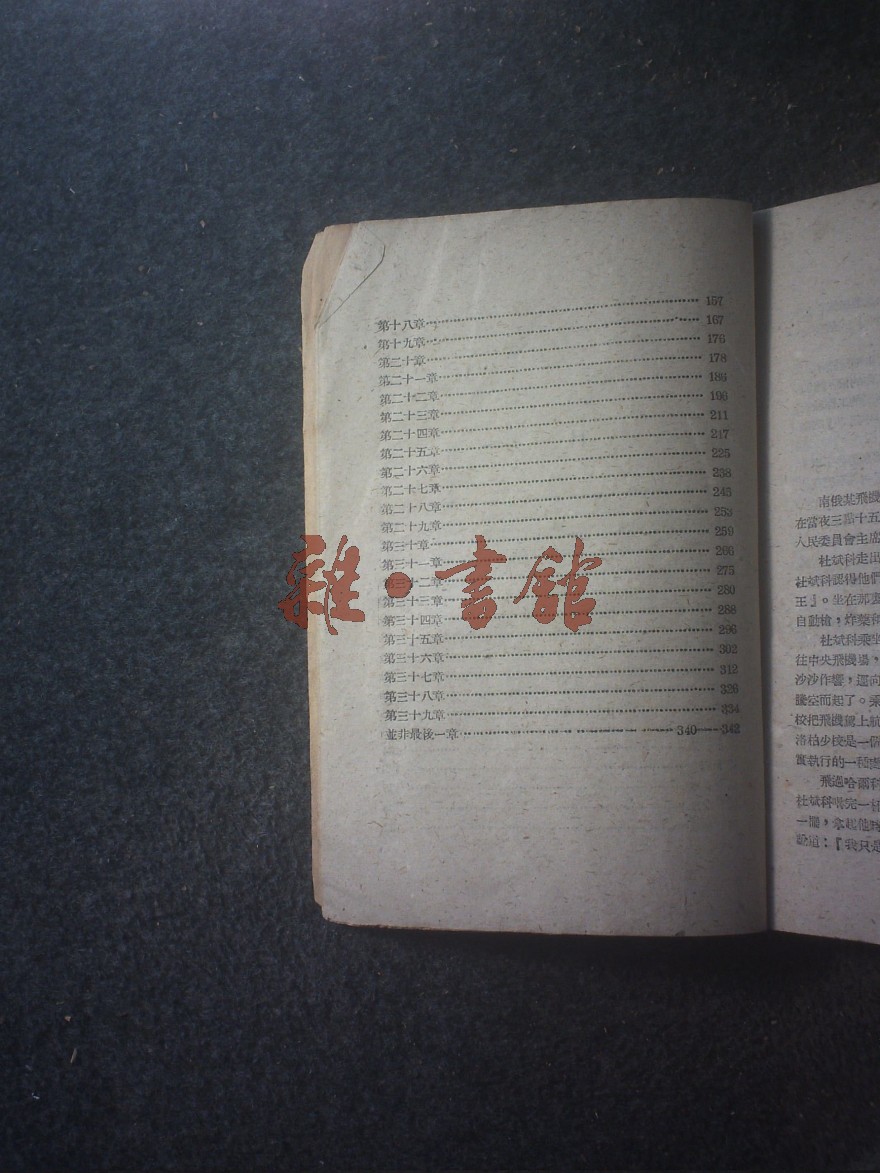 第十八章 157
第十九章 167
第二十章 176
第二十一章 178
第二十二章 186
第二十三章 196
第二十四章 211
第二十五章 217
第二十六章 225
第二十七章 238
第二十八章 245
第二十九章 253
第三十章 259
第三十一章 266
第三十二章 275
第三十三章 280
第三十四章 288
第三十五章 296
第三十六章 302
第三十七章 312
第三十八章 326
第三十九章 334
並非最後一章 340——342
雜·書館
南俄某飛機
在當夜三點十五
人民委員會主席
杜斌科走出
杜斌科認得他們
王』。坐在那裏
自動槍,炸藥和
杜斌科乘坐
往中央飛機場,
沙沙作響,邁向
騰空而起了。乘
校把飛機駕上航
洛柏少校是一個
實執行的一種
飛過哈爾科
杜斌科喝完一杯
一擱,拿起他
說道:『我只是